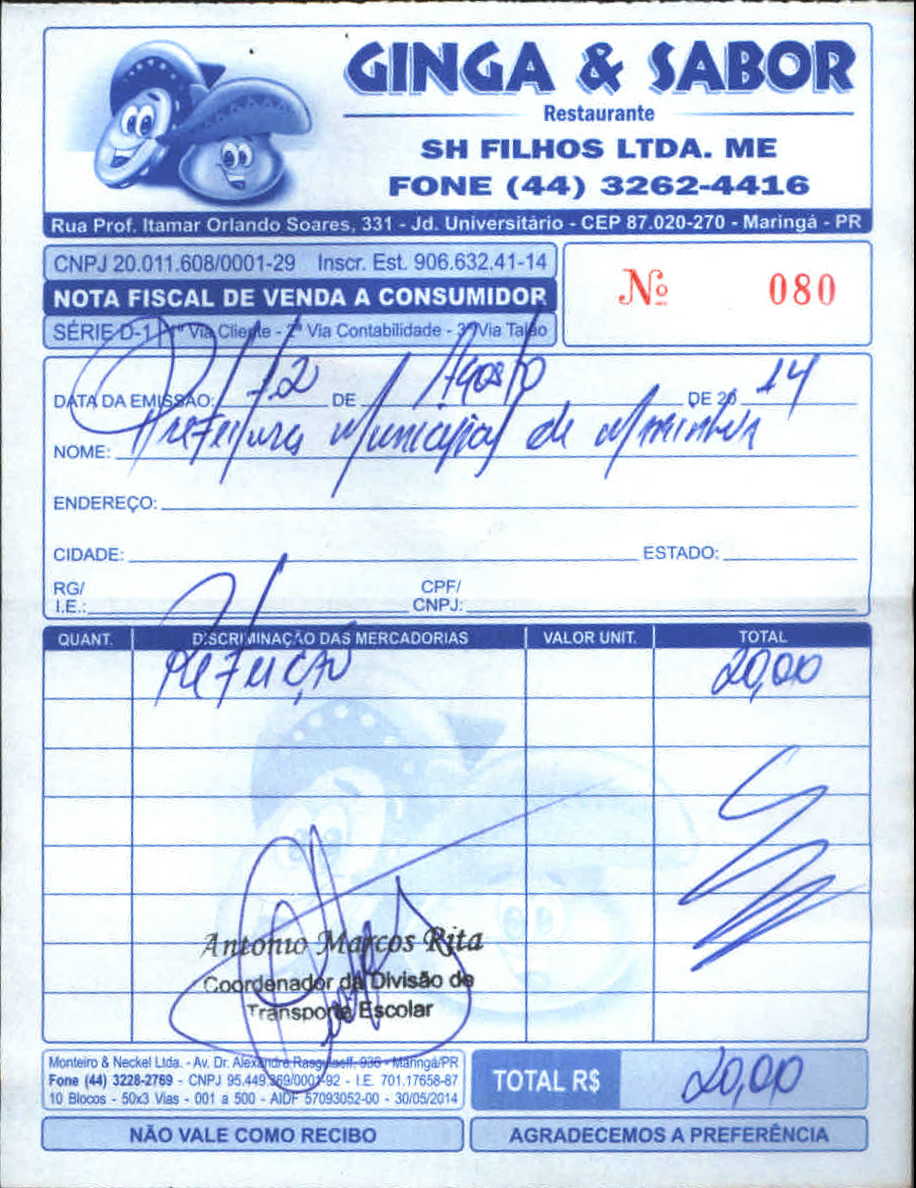 GINGA & SABOR
Restaurante
SH FILHOS LTDA. ME
FONE (44) 3262-4416
Rua Prof. Itamar Orlando Soares, 331 - Jd. Universitário - CEP 87.020-270 - Maringá - PR
CNPJ 20.011.608/0001-29 Inscr. Est. 906.632.41-14
NOTA FISCAL DE VENDA A CONSUMIDOR
SÉRIE D-1 1ª Via Cliente - 2ª Via Contabilidade - 3ª Via Talão
Nº 080
DATA DA EMISSÃO: 12 DE Agosto DE 20 14
NOME: Prefeitura Municipal de
ENDEREÇO:
CIDADE: ESTADO:
RG/ I.E.: CPF/ CNPJ:
QUANT. DISCRIMINAÇÃO DAS MERCADORIAS VALOR UNIT. TOTAL
Refeição 20,00
Antonio Marcos Rita
Coordenador da Divisão de
Transporte Escolar
Monteiro & Neckel Ltda. - Av. Dr. Alexandre 936 - Maringá/PR
Fone (44) 3228-2769 - CNPJ 95.449.369/0001-92 - I.E. 701.17658-87
10 Blocos - 50x3 Vias - 001 a 500 - AIDF 57093052-00 - 30/05/2014
TOTAL R$ 20,00
NÃO VALE COMO RECIBO
AGRADECEMOS A PREFERÊNCIA